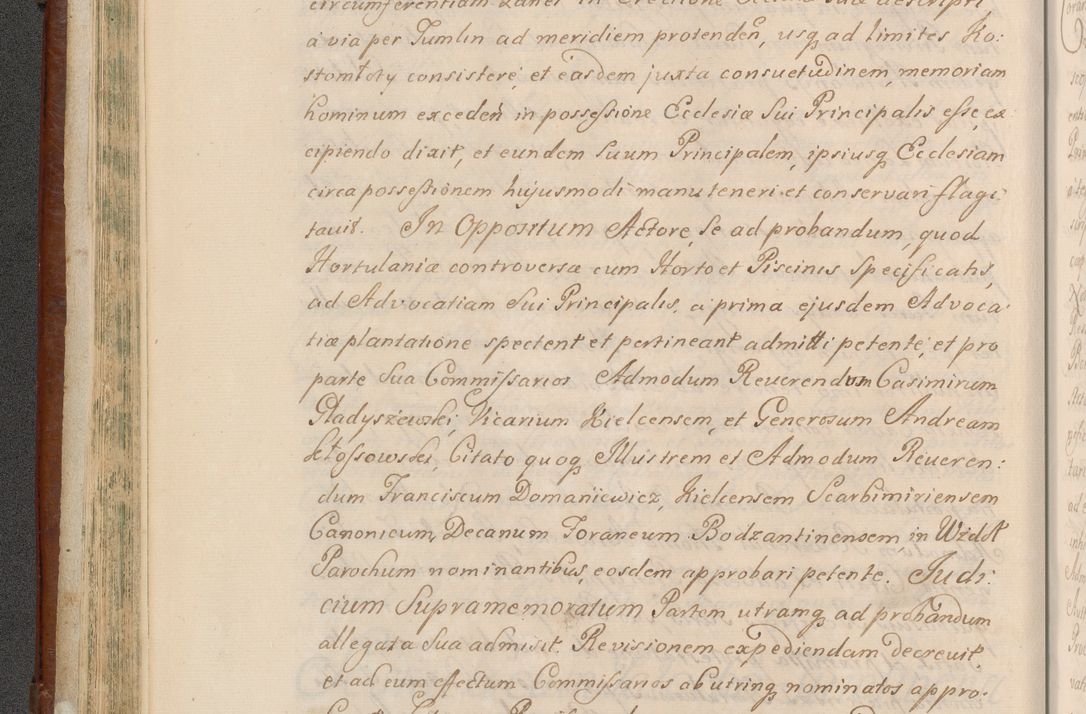 circumferentiam Lanei in Erectione Ecclesiæ suæ descripti
á via per Tumlin ad meridiem protendeñ, usq ad limites Ko:
stomłoty consistere, et easdem juxta consuetudinem, memoriam
hominum excedeñ in possessione Ecclesiæ Sui Principalis esse, ex
cipiendo dixit, et eundem Suum Principalem, ipsiusq Ecclesiam
circa possessionem hujusmodi manuteneri et conservari flagi:
tavit. In Oppositum Actore, Se ad probandum, quod
Hortulaniæ controversæ cum Horto et Piscinis Specificatis,
ad Advocatiam Sui Principalis, a prima ejusdem Advoca:
tiæ plantatione spectent et pertineant admitti petente, et pro
parte Sua Commissarios Admodum Reverendum Casimirum
Gładyszewski, Vicarium Kielcensem, et Generosum Andream
Kłossowski, Citato quoq Illustrem et Admodum Reveren:
dum Franciscum Domaniewicz, Kielcensem Scarbimiriensem
Canonicum, Decanum Foraneum Bodzantinensem, in Wzdół
Parochum nominantibus, eosdem approbari petente. Judi:
cium Supramemoratum Partem utramq ad probandum
allegata Sua admisit. Revisionem expediendam decrevit,
et ad eum effectum Commissarios ab utrinq nominatos appro: